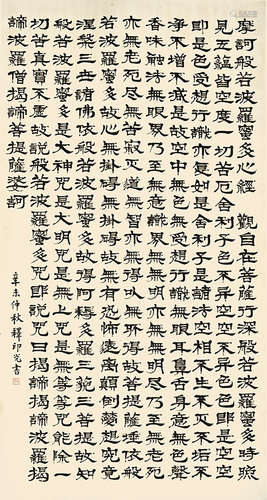 摩訶般若波羅蜜多心經 觀自在菩薩行深般若波羅蜜多時照
見五蘊皆空度一切苦厄舍利子色不異空空不異色色即是空空
即是色受想行識亦復如是舍利子是諸法空相不生不滅不垢不
淨不增不減是故空中無色無受想行識無眼耳鼻舌身意無色聲
香味觸法無眼界乃至無意識界無無明亦無無明盡乃至無老死
亦無老死盡無苦集滅道無智亦無得以無所得故菩提薩埵依般若
波羅蜜多故心無掛礙無掛礙故無有恐怖遠離顛倒夢想究竟
涅槃三世諸佛依般若波羅蜜多故得阿耨多羅三藐三菩提故知
般若波羅蜜多是大神咒是大明咒是無上咒是無等等咒能除一
切苦真實不虛故說般若波羅蜜多咒即說咒曰揭諦揭諦波羅揭
諦波羅僧揭諦菩提薩婆訶
辛未仲秋釋印光書